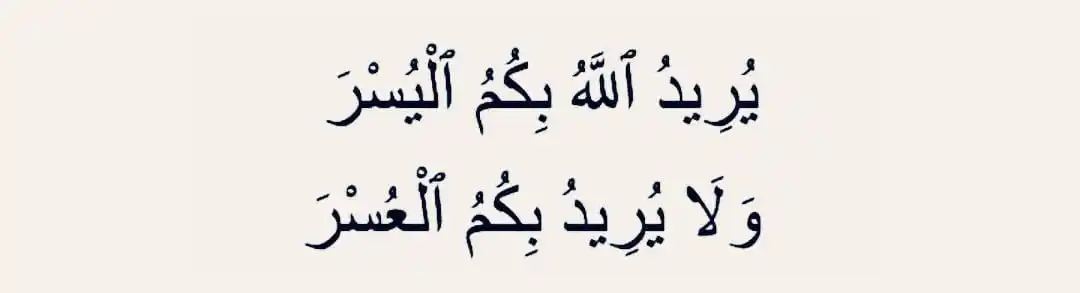 يُرِيدُ ٱللَّهُ بِكُمُ ٱلْيُسْرَ
وَلَا يُرِيدُ بِكُمُ ٱلْعُسْرَ